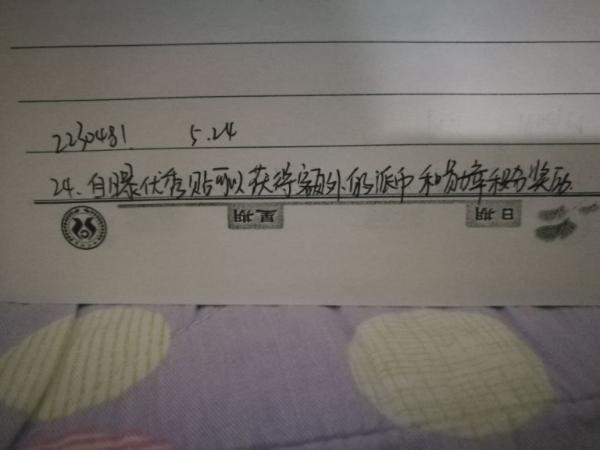 2230481. 5.24
24. 自曝优秀贴可以获得额外的派币和勋章积分奖励.
星期 日期